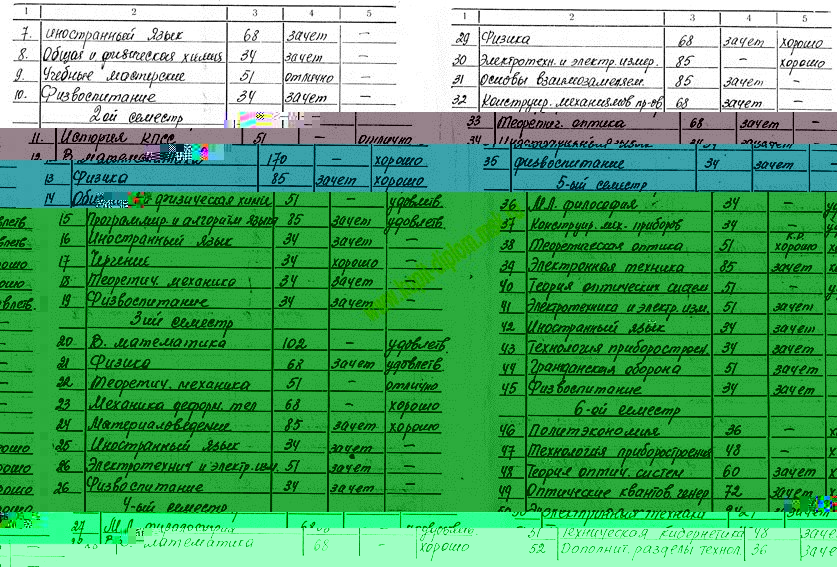 1 2 3 4 5
7. Иностранный язык 68 зачет –
8. Общая и физическая химия 34 зачет –
9. Учебные мастерские 51 отлично –
10. Физвоспитание 34 зачет –
2ой семестр
11. История КПСС 51 – отлично
12. 170 – хорошо
13 Физика 85 зачет хорошо
14 физическая 51 – удовлетв.
15 Программир и алгоритм языки 85 зачет удовлетв.
16 Иностранный язык 34 зачет –
17 Черчение 34 хорошо –
18 Теоретич. механика 34 зачет –
19 Физвоспитание 34 зачет –
3ий семестр
20 В. математика 102 – удовлетв
21 Физика 68 зачет удовлетв.
22 Теоретич. механика 51 – отлично
23 Механика деформ. тел 68 – хорошо
24 Материаловедение 85 зачет хорошо
25 Иностранный язык 34 зачет –
26 Электротехнич и электр.изм. 51 зачет –
26 Физвоспитание 34 зачет –
4-ый семестр
27 М.Л.
математика 68 – хорошо
1 2 3 4 5
29 Физика 68 зачет хорошо
30 Электротехн. и электр. измер. 85 – хорошо
31 Основы взаимозаменяем. 85 зачет –
32 Конструир. механизмов пр-ов 68 зачет –
33 Теоретич. оптика 68 зачет –
34
35 физвоспитание 34 зачет
5-ый семестр
36 М.Л. философия 34 –
37 Конструир. мех. приборов 34 –
К.Р.
38 Теоретическая оптика 51 хорошо
39 Электронная техника 85 зачет
40 Теория оптических систем 51 –
41 Электротехника и электр. изм. 51 зачет
42 Иностранный язык 34 зачет
43 Технология приборостроен. 34 зачет
44 Гражданская оборона 51 зачет
45 Физвоспитание 34 зачет
6-ой семестр
46 Политэкономия 36 –
47 Технология приборостроения 48 –
48 Теория оптич. систем 60 зачет
49 Оптические квантов. генер 72 зачет
50
51 Техническая кибернетика 48
52 Дополнит. разделы технол. 36